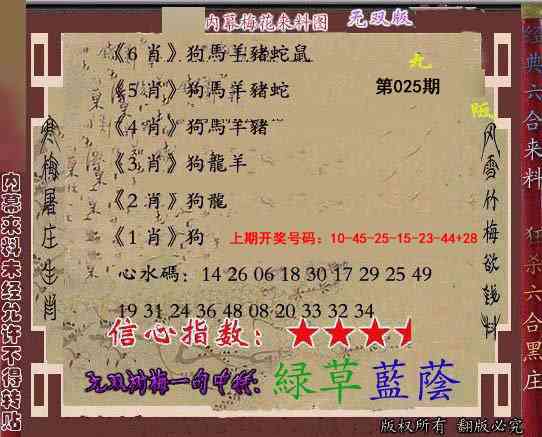 内幕梅花来料图 无双版
《6 肖》狗馬羊豬蛇鼠
九
《5 肖》狗馬羊豬蛇
第025期
阪
《4 肖》狗馬羊豬
《3 肖》狗龍羊
《2 肖》狗龍
《1 肖》狗
上期开奖号码：10-45-25-15-23-44+28
心水碼：14 26 06 18 30 17 29 25 49
19 31 24 36 48 08 20 33 32 34
信心指数：
无双 梅一句中特：緑草藍蔭
版权所有 翻版必究
寒梅屠庄生肖
风雪竹梅欲钱料
内幕来料未经允许不得转贴
经典六合来料
狂杀六合黑庄